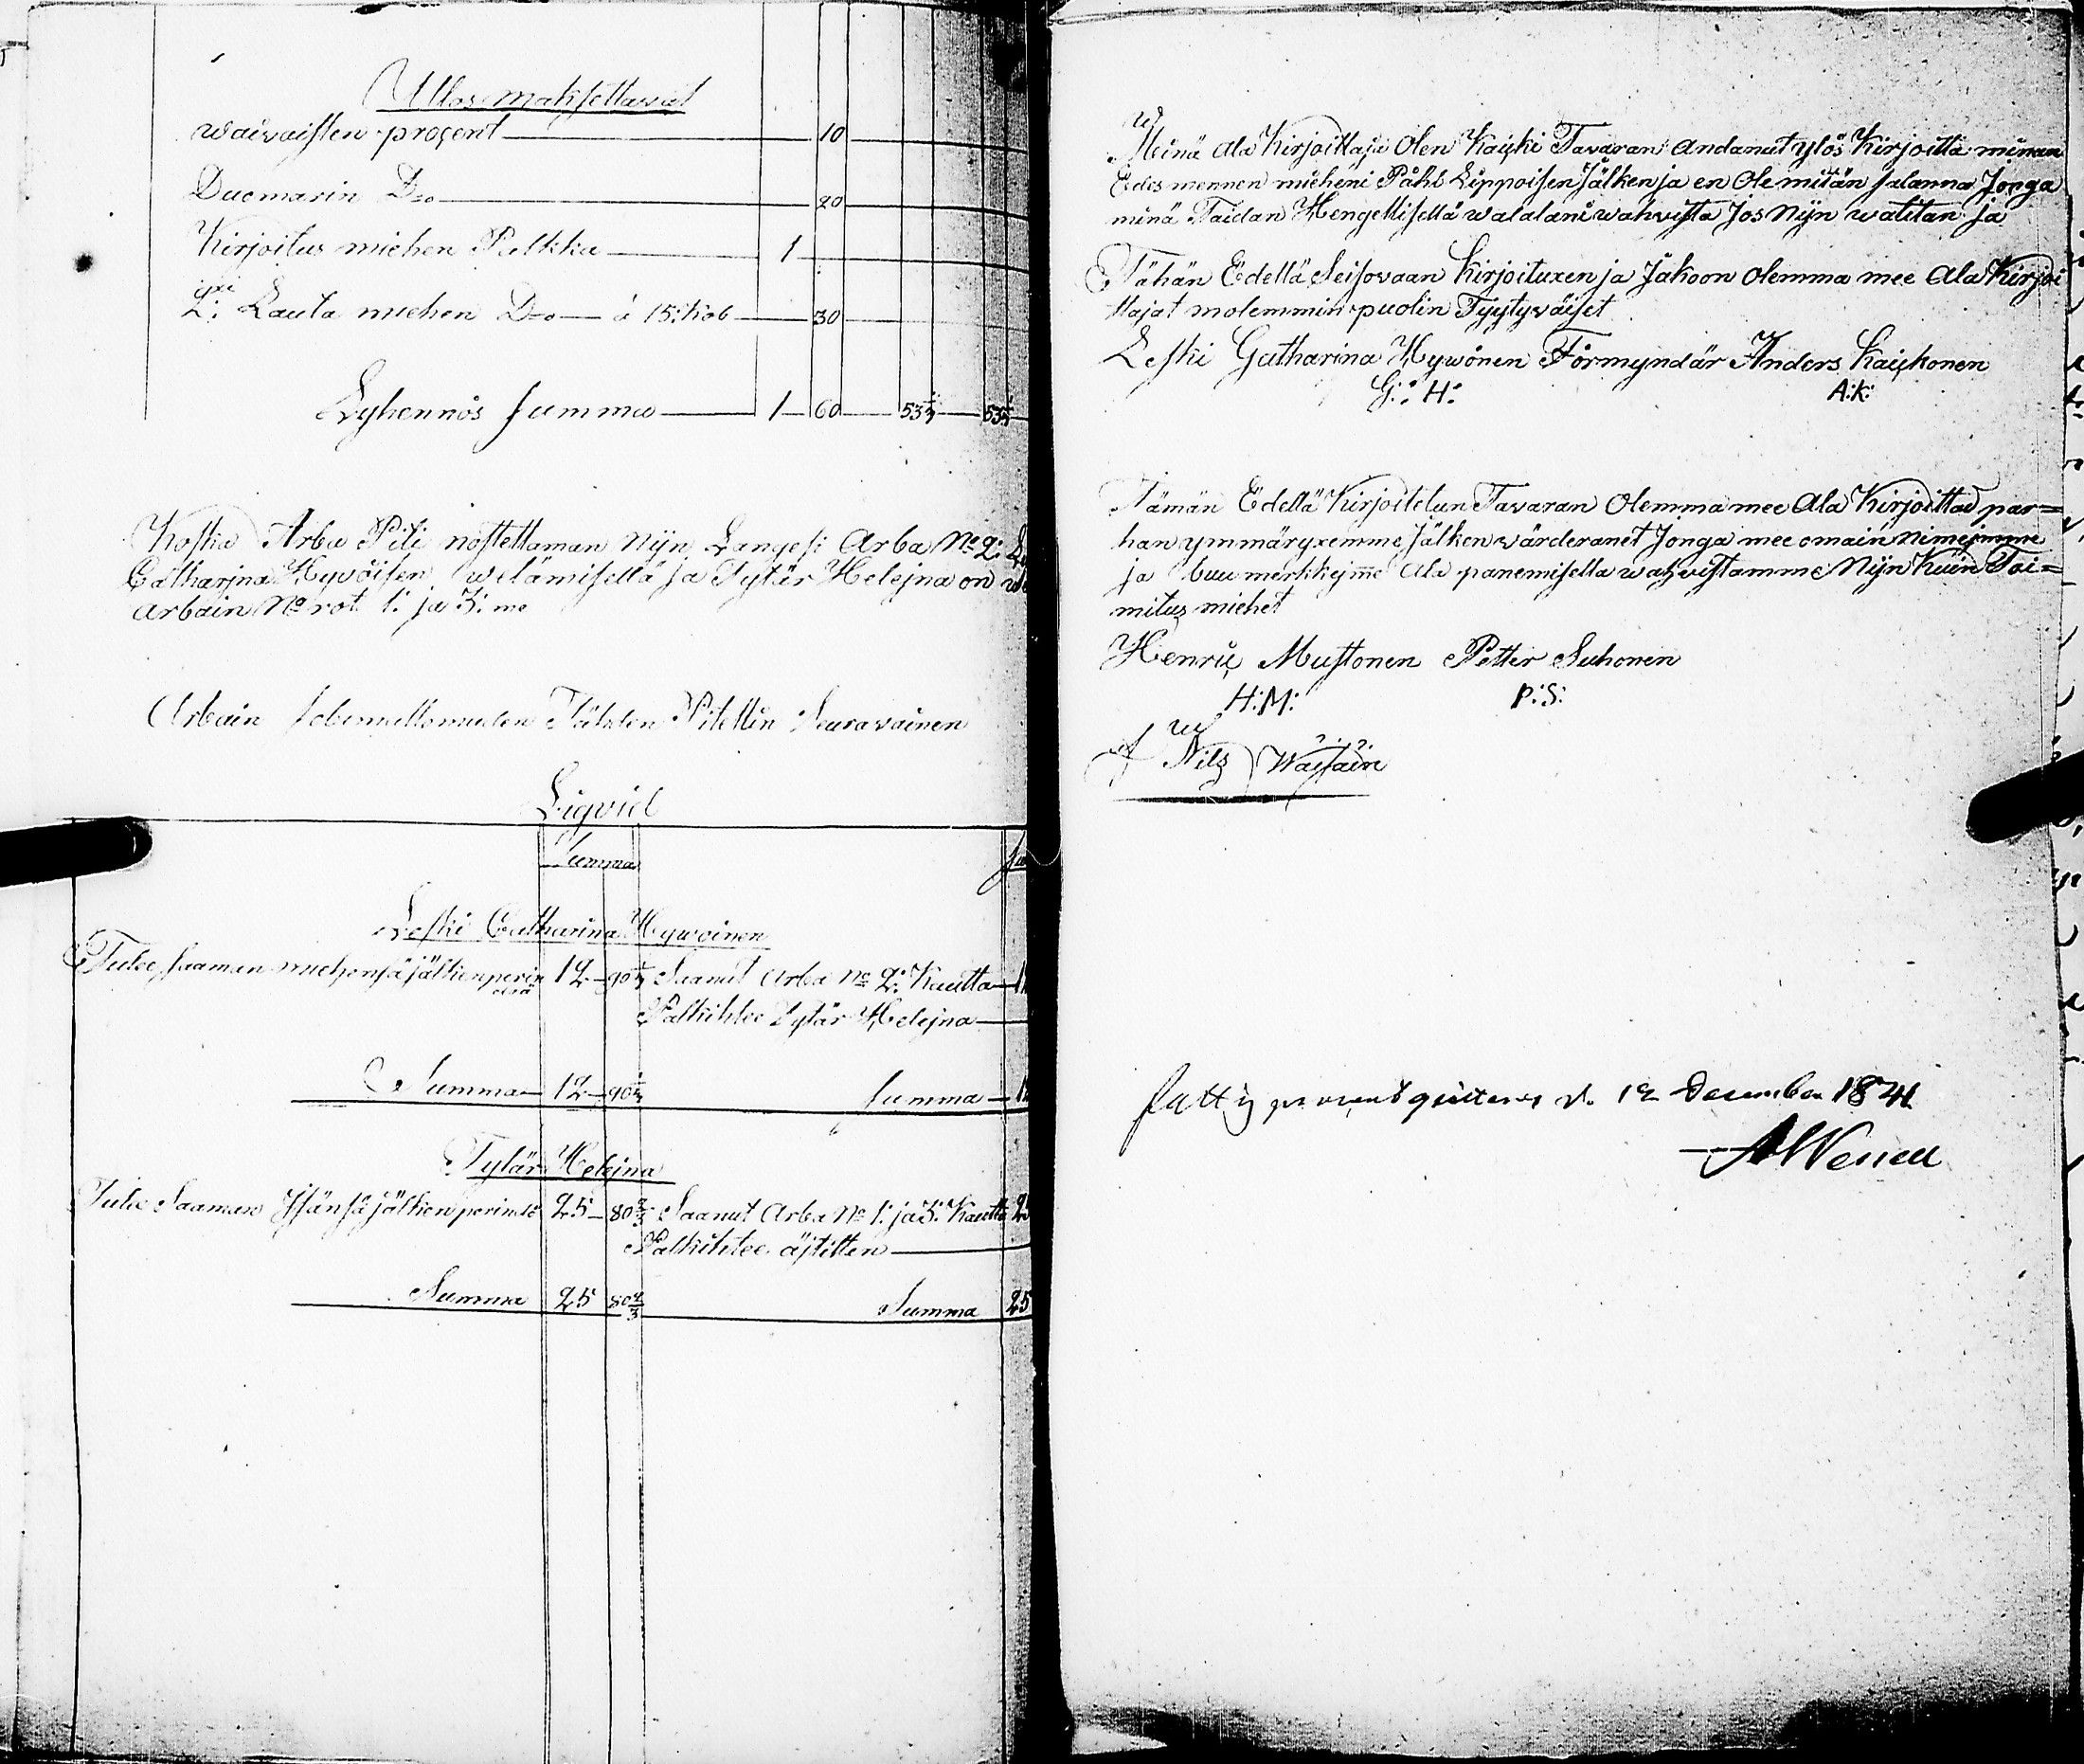 Ullos maksettavat
waivaisten proçent 10
Duomarin D:o 20
Kirjoitus miehen Palkka 1
2: Lauta miehen D:o á 15: kob 30
Lyhennös summa 1 60 53 1/3 53 1/3
Koska Arba Piti nostettaman Nijn Langesi Arba No 2:
Catharina Hyvöisen welämisellä ja Tytär Helejna on
arbain No rot 1: ja 3: me
Arbain Jälken Pitettin Seuravainen
Liqvid
Summa
Leski Catharina Hywöinen
Tulee saaman miehensä jälkien perin 12 90 1/3 Saanut Arba No 2: Kautta
döä
Palkihtee Tytär Helejna
Summa 12 90 1/3 summa
Tytär Helejna
Tulee Saaman Isänsä jälkien perindö 25 80 2/3 Saanut Arba No 1: ja 3: Kautta 25
Palkihtee äjtillen
Summa 25 80 2/3 Summa 25
Meinä ala Kirjoittaja Olen Kaicki Tavaran andanut ylös Kirjoitta minun
Edes mennen mieheni Påhl Lippoisen Jälken ja en Ole mitän salanna Jonga
minä Taidan Hengellisellä walalani wahvista Jos Nijn watitan ja
Tähän Edellä Seisovaan Kirjoituxen ja Jakoon olemma mee ala Kirjoi
ttajat molemmin puolin Tyytyväiset
Leski Gatharina Hywönen Förmyndär Anders Kaickonen
G: H: A:K:
Tämän Edellä Kirjoitetun Tavaran Olemma mee Ala Kirjoittad par=
han ymmäryxemme Jälken värderanet Jonga mee omain nimejmme
ja buu merkkejme ala panemisella wahvistamme Nijn Kuin Toi=
mitus miehet
Henric Mustonen Petter Suhonen
H:M: P:S:
Nils Waisäin
fattig procent qvitteras d. 12 December 1841